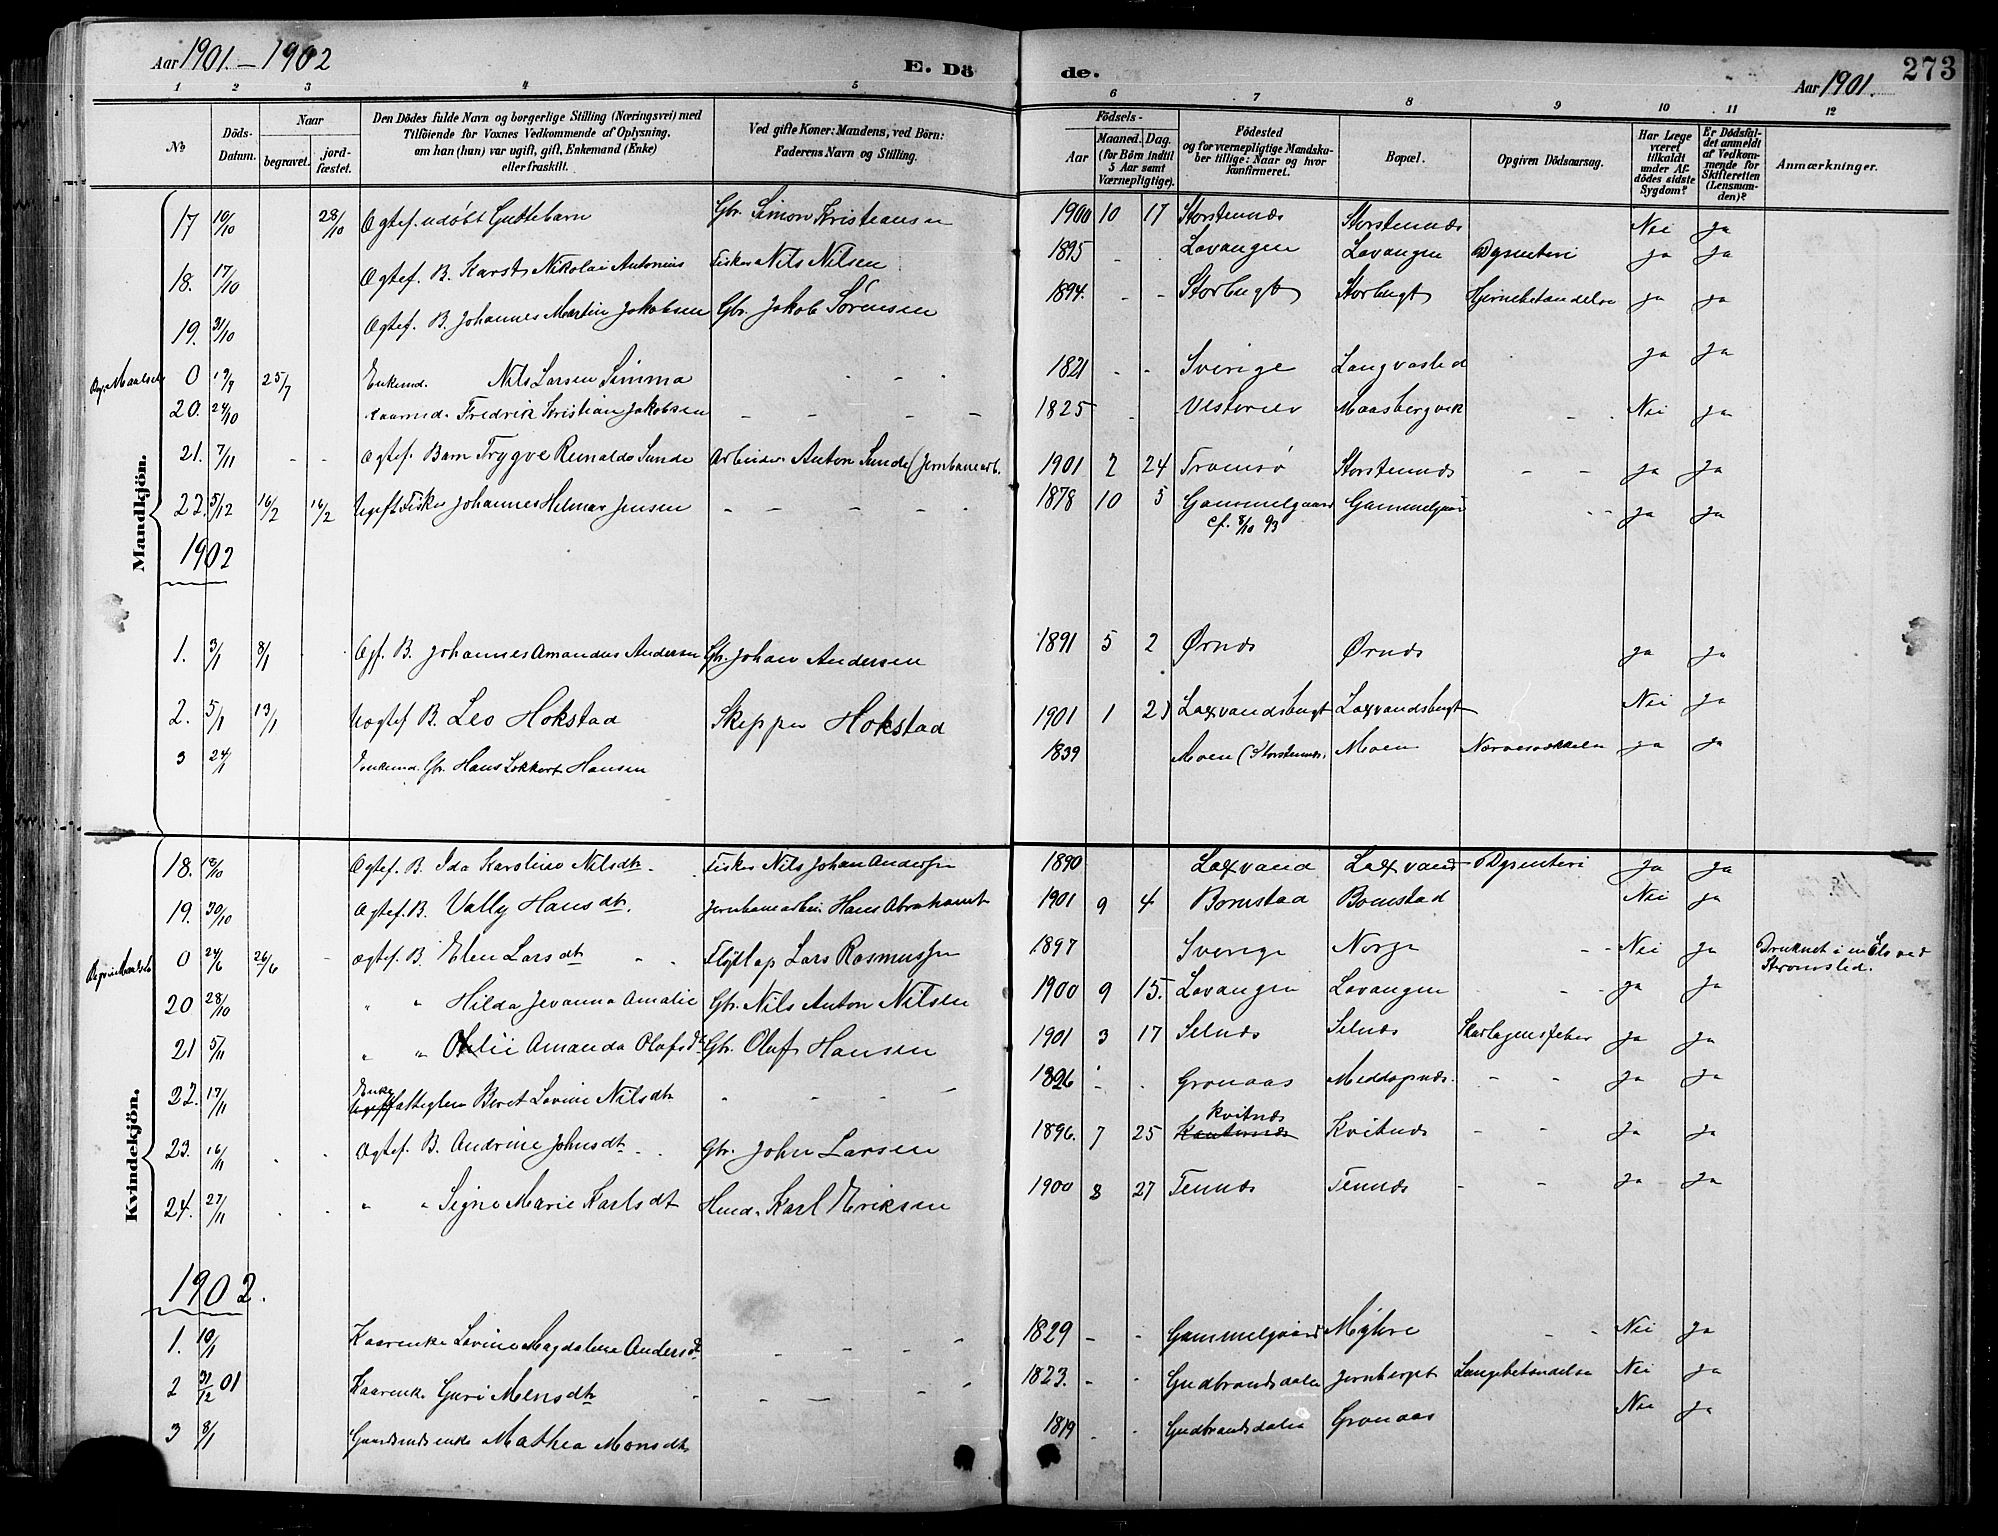 Aar 1901.-1902
E. Dö
de.
Aar 1901.
273
1 2 3 4 5 6 7 8 9 10 11 12
No
Döds-Datum.
Naar
begravet.
jord-fæstet.
Den Dödes fulde Navn og borgerlige Stilling (Næringsvei) med
Tilföiende for Voxnes Vedkommende af Oplysning.
om han (hun) var ugift, gift, Enkemand (Enke)
eller fraskilt.
Ved gifte Koner: Mandens, ved Börn:
Faderens Navn og Stilling.
Födsels-
Aar
Maaned. Dag.
(for Börn indtil
5 Aar samt
Værnepligtige).
Födested
og for værnepligtige Mandska-
ber tillige: Naar og hvor
konfirmeret.
Bopæl.
Opgiven Dödsaarsag.
Har Læge
været
tilkaldt
under Af-
dödes sidste
Sygdom?
Er Dödsfal-
det anmeldt
af Vedkom-
mende for
Skifteretten
(Lensman-
den)?
Anmærkninger.
Mandkjön.
17 10/10 28/10 Ogtef. udøbt Guttebarn Gbr. Simon Kristiansen 1900 10 17 Storstennæs Storstennæs Nei Ja
18. 17/10 Ogtef. B. Nikolai Antonius Fisker Nils Nilsen 1895 - - Lavangen Lavangen Dysenteri Ja Ja
19. 31/10 Ogtef. B. Johannes Martin Jakobsen Gbr. Jakob Sørensen 1894. - - Storbugt Storbugt Hjernebetændelse Ja Ja
0 19/7 25/7 Enkemd. Nils Larsen Simma - - - 1821 - - Sverige Ja Ja
20. 24/10 Kaarmd. Fredrik Kristian Jakobsen - - - - 1825 - Maasbergvik - - Nei Ja
21. 7/11 - - Ogtef. Barn Trygve Sunde Arbeider Anton Sunde (Jernbanearb. 1901 2 24 Tromsø Storstennæs - - Ja Ja
22. 5/12 16/2 16/2 Ugift Fisker Johannes Helmar Jensen - - - - 1878 10 5 Gammelgaard Gammelgaard - - Ja Ja
cf. 8/10 93
1902
1. 3/1 8/1 Ogf. B. Johannes Amandus Andersen Gbr. Johan Andersen 1891 5 2 Ørnæs Ørnæs Ja Ja
2. 5/1 13/1 Uogtef B. Leo Hokstad Skepper Hokstad 1901 1 Laxvandsbugt Laxvandsbugt Nei Ja
3 24/1 Enkemd. Gbr. Hans Lokkert Hansen 1839 Moen (Storstennæs. Moen Ja Ja
Kvindekjön.
18. 18/10 Ogtef. B. Ida Karoline Nilsdt. Fisker Nils Johan Andersen 1890 Laxvand Laxvand Dysenteri Ja Ja
19. 30/10 Ogtef. B. Vally Hansdt. Jernbanearbei. Hans 1901 9 4 Bomstad Bomstad Nei Ja
0 24/6 26/6 - Ogtef. B. Elen Larsdt Flytlap Lars Rasmussen 1897 Sverige Norge - - Nei Ja Druknet i en Elv ved
20 28/10 " " Hilda Jevanna Amalie Gbr. Nils Anton Nilsen 1900 9 15. Lavangen Lavangen - - Ja Ja
21 5/11 " " Amanda Olafsdt Gbr. Olaf Hansen 1901 3 17 Selnæs Selnæs Skarlagensfeber Ja Ja
22. 17/11 Enke fattiglem Beret Lovine Nilsdt - - - - 1826 - - Gronaas - - Ja Ja
23. 16/11 - - Ogtef. B. Andrine Johnsdt Gbr. John Larsen 1896. 7 25 Kvitnæs Kvitnæs - - Ja Ja
24. 27/11 - - " " Signe Marie Karlsdt Hmd. Karl Eriksen 1900 8 27 Tennæs Tennæs - - Ja Ja
1902.
1. 10/1 Kaarenke Lovine Magdalena Andersdt - - - - 1829 - - Gammelgaard - - Nei Ja
2 31/12 01 Kaarenke Guri Mensdt - - - - 1823. - - Gudbrandsdalen Lungebetændelse Nei Ja
3 8/1 Gaardmdsenke Mathea Monsdt 1819 - - Gudbrandsdalen Gronaas Nei Ja